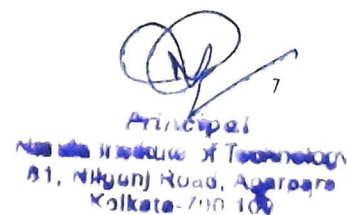 7
Principal
Institute of Technology
81, Nilgunj Road, Agarpara
Kolkata-700 109